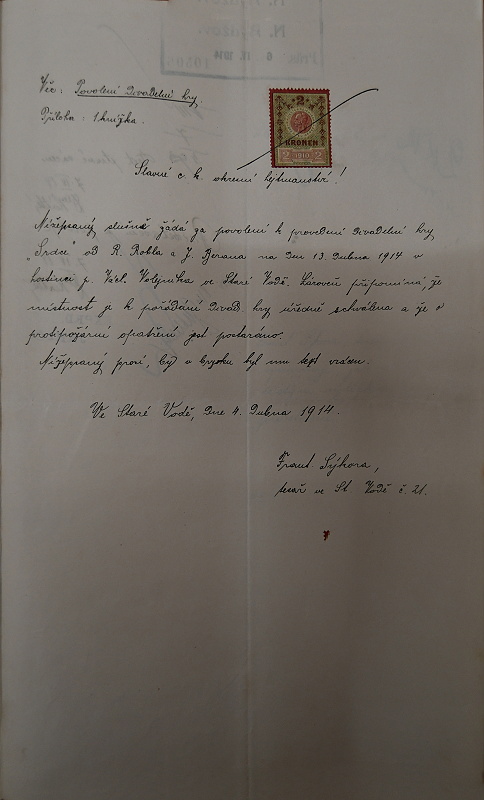 Věc: Povolení divadelní hry.
Příloha: 1 knížka.
2
KRONEN
2 1910 2
Slavné c. k. okresní hejtmanství!
Nížepsaný slušně žádá za povolení k provedení divadelní hry
"Srdce" od R. Robla a J. Berana na den 13. dubna 1914 v
hostinci p. Václ. ve Staré Vodě. Zároveň připomíná, že
místnost je k pořádání divad. hry úředně schválena a že o
protipožární opatření jest postaráno.
Nížepsaný prosí, by v brzku byl mu text vrácen.
Ve Staré Vodě, dne 4. dubna 1914.
Frant. Sýkora,
tesař ve St. Vodě č. 21.